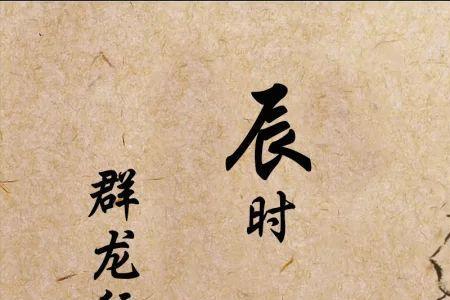 辰时
群龙